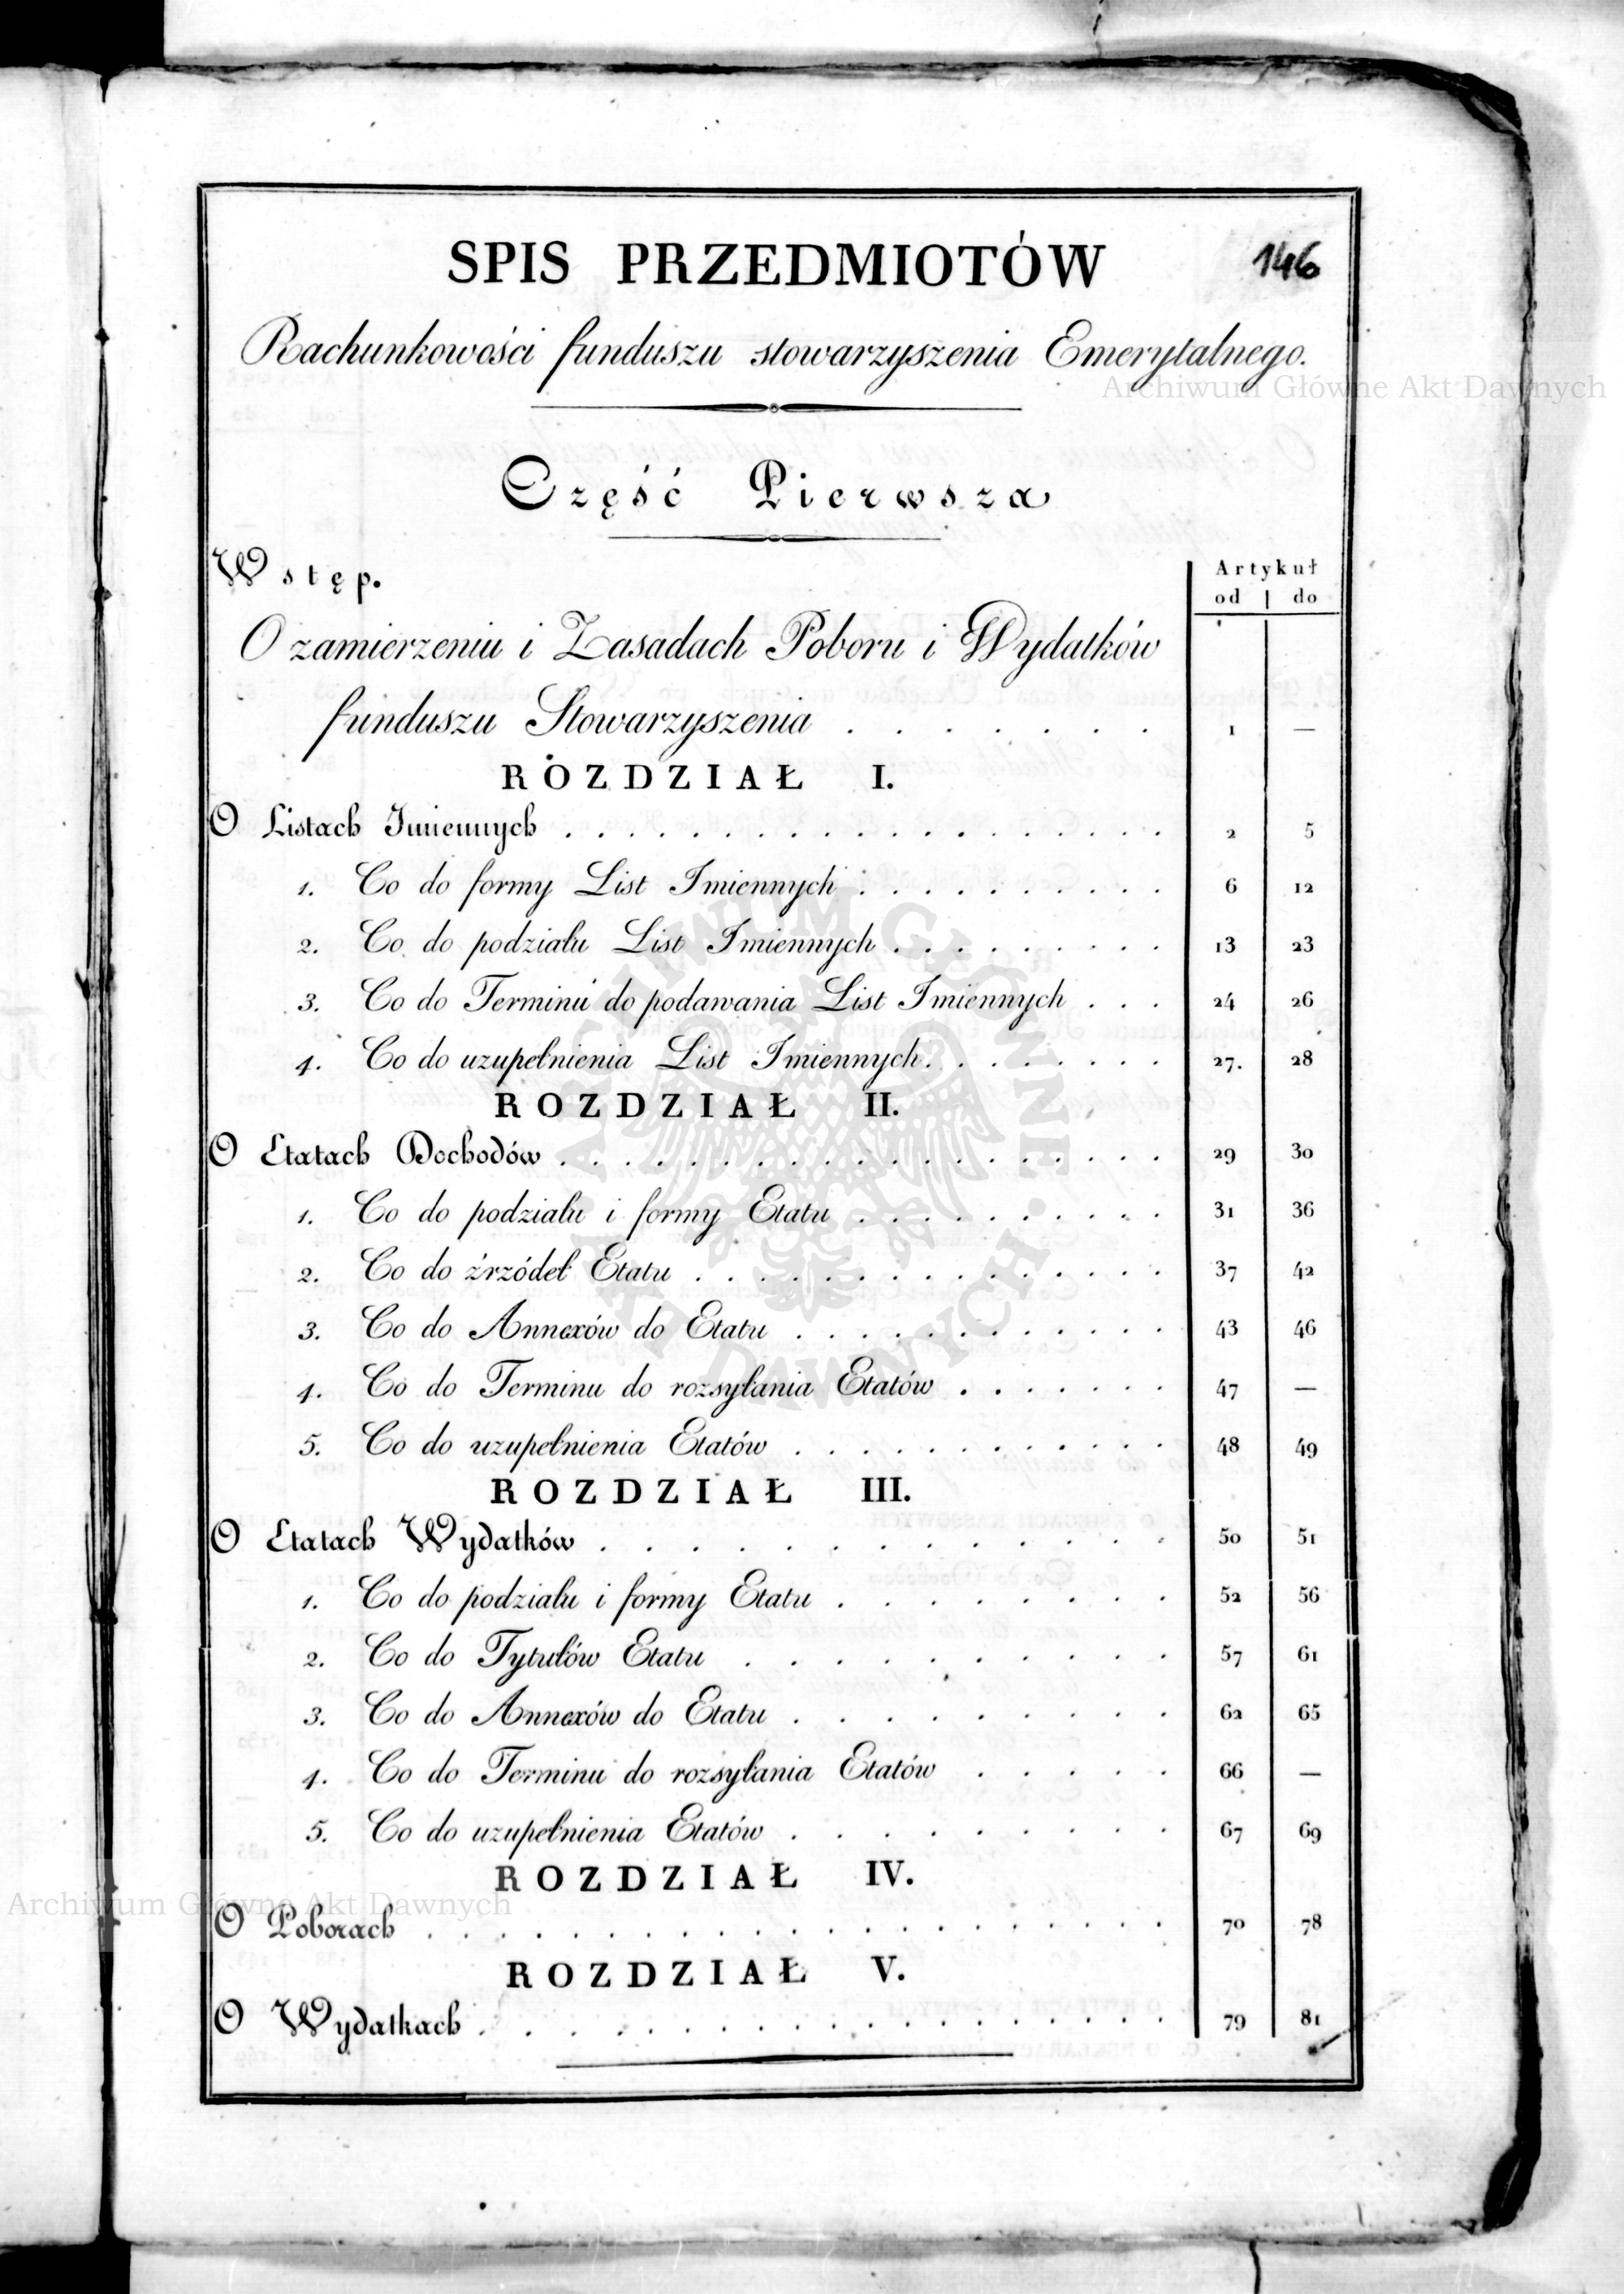 SPIS PRZEDMIOTÓW 146
Rachunkowości funduszu stowarzyszenia Emerytalnego.
Archiwum Główne Akt Dawnych
Część Pierwsza
Wstęp.
Artykuł
od | do
O zamierzeniu i Zasadach Poboru i Wydatków
funduszu Stowarzyszenia . . . . . . . 1 —
ROZDZIAŁ I.
O Listach Imiennych . . . . . . . . . . . . . . . . . . . 2 5
1. Co do formy List Imiennych . . . . . . . . . . 6 12
2. Co do podziału List Imiennych . . . . . . . . . 13 23
3. Co do Terminu do podawania List Imiennych . . . 24 26
4. Co do uzupełnienia List Imiennych . . . . . . . . 27. 28
ROZDZIAŁ II.
O Etatach Dochodów . . . . . . . . . . . . . . . . . . . 29 30
1. Co do podziału i formy Etatu . . . . . . . . . . 31 36
2. Co do źrzódeł Etatu . . . . . . . . . . . . . . . 37 42
3. Co do Annexów do Etatu . . . . . . . . . . . . 43 46
4. Co do Terminu do rozsyłania Etatów . . . . . . . 47 —
5. Co do uzupełnienia Etatów . . . . . . . . . . . . 48 49
ROZDZIAŁ III.
O Etatach Wydatków . . . . . . . . . . . . . 50 51
1. Co do podziału i formy Etatu . . . . . . . . 52 56
2. Co do Tytułów Etatu . . . . . . . . . . 57 61
3. Co do Annexów do Etatu . . . . . . . . . 62 65
4. Co do Terminu do rozsyłania Etatów . . . . . 66 —
5. Co do uzupełnienia Etatów . . . . . . . . . 67 69
ROZDZIAŁ IV.
Archiwum Główne Akt Dawnych
O Poborach . . . . . . . . . . . . . . . . . 70 78
ROZDZIAŁ V.
O Wydatkach . . . . . . . . . . . . . . . . . 79 81
ARCHIWUM GŁÓWNE · AKT DAWNYCH ·